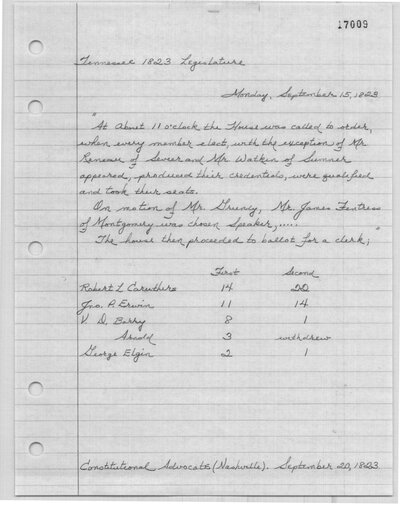 17009
Tennessee 1823 Legislature
Monday, September 15, 1823
"At about 11 o'clock the House was called to order,
when every member elect, with the exception of Mr.
of Sevier and Mr Watkin of Sumner
appeared, produced their credentials, were qualified
and took their seats.
On motion of Mr. Grundy, Mr. James Fentress
of Montgomery was chosen Speaker, .....
The house then proceeded to ballot for a clerk; "
First Second
Robert L Caruthers 14 20
Jno. P. Erwin 11 14
V. D. Barry 8 1
Arnold 3 withdrew
George Elgin 2 1
Constitutional Advocate (Nashville). September 20, 1823